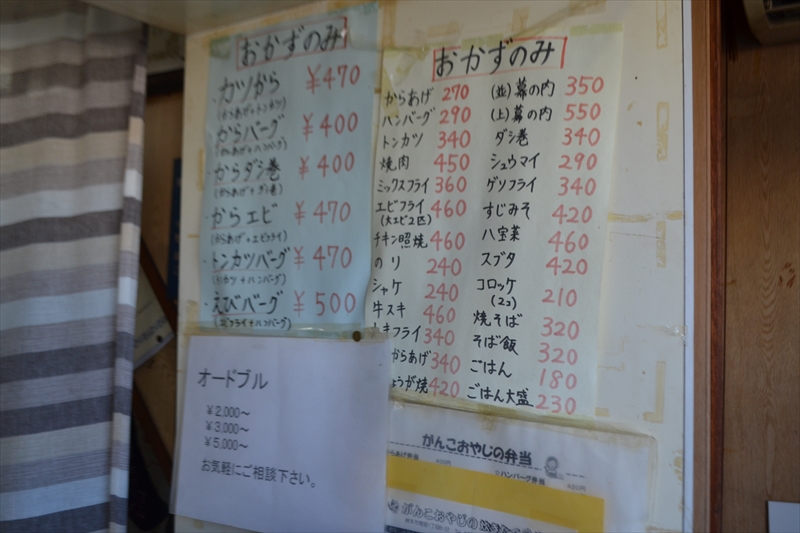 おかずのみ
・カツから ¥470
(からあげ+トンカツ)
・からバーグ ¥400
(からあげ+ハンバーグ)
・からダシ巻 ¥400
(からあげ+ダシ巻)
・からエビ ¥470
(からあげ+エビフライ)
・トンカツバーグ ¥470
(トンカツ+ハンバーグ)
・えびバーグ ¥500
(エビフライ+ハンバーグ)
おかずのみ
からあげ 270
ハンバーグ 290
トンカツ 340
焼肉 450
ミックスフライ 360
エビフライ 460
(大エビ2匹)
チキン照焼 460
のり 240
シャケ 240
牛スキ 460
キフライ 340
からあげ 340
しょうが焼 420
(並)幕の内 350
(上)幕の内 550
ダシ巻 340
シュウマイ 290
ゲソフライ 340
すじみそ 420
八宝菜 460
スブタ 420
コロッケ 210
(2コ)
焼そば 320
そば飯 320
ごはん 180
ごはん大盛 230
オードブル
¥2,000~
¥3,000~
¥5,000~
お気軽にご相談下さい。
がんこおやじの弁当
からあげ弁当 400円
ハンバーグ弁当 400円
がんこおやじの